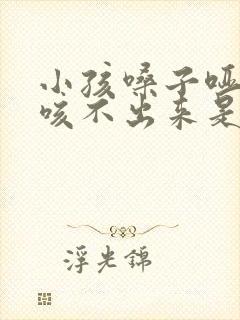 小孩嗓子哑
咳不出来是
浮光锦